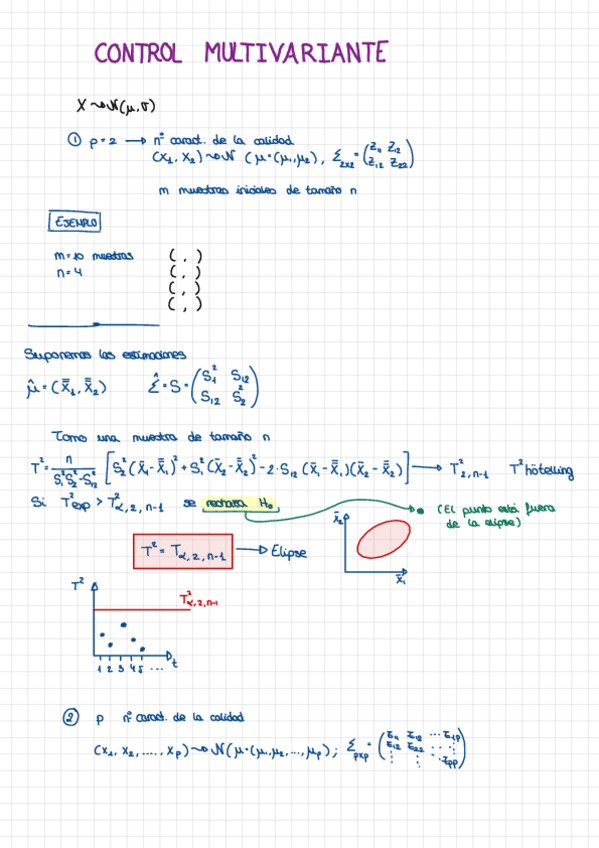 CONTROL MULTIVARIANTE
X ~> N(μ, σ)
① p = 2 → nº caract. de la calidad
(X₁, X₂) ~> N (μ = (μ₁, μ₂), Σ₂ₓ₂ = (Σ₁₁ Σ₁₂
Σ₁₂ Σ₂₂)
m muestras iniciales de tamaño n
EJEMPLO
m = 10 muestras ( , )
n = 4 ( , )
( , )
( , )
Suponemos las estimaciones
μ̂ = (X̿₁, X̿₂) Σ̂ = S = (S₁² S₁₂
S₁₂ S₂²)
Tomo una muestra de tamaño n
T² = n / (S₁²S₂² - S₁₂²) [S₂²(X̄₁ - X̿₁)² + S₁²(X̄₂ - X̿₂)² - 2·S₁₂(X̄₁ - X̿₁)(X̄₂ - X̿₂)] → T²₂,ₙ₋₁ T² hötelling
Si T²exp > T²α,2,n-1 se rechaza H₀
(El punto está fuera
de la elipse)
X̄₂
T² = Tα,2,n-1 → Elipse
X̄₁
T²
T²α,2,n-1
1 2 3 4 5 ... t
② p nº caract. de la calidad
(X₁, X₂, ....., Xp) ~> N(μ = (μ₁, μ₂, ..., μp); Σpxp = (Σ₁₁ Σ₁₂ ... Σ₁p
Σ₁₂ Σ₂₂ ...
⋮ ⋮ Σpp)